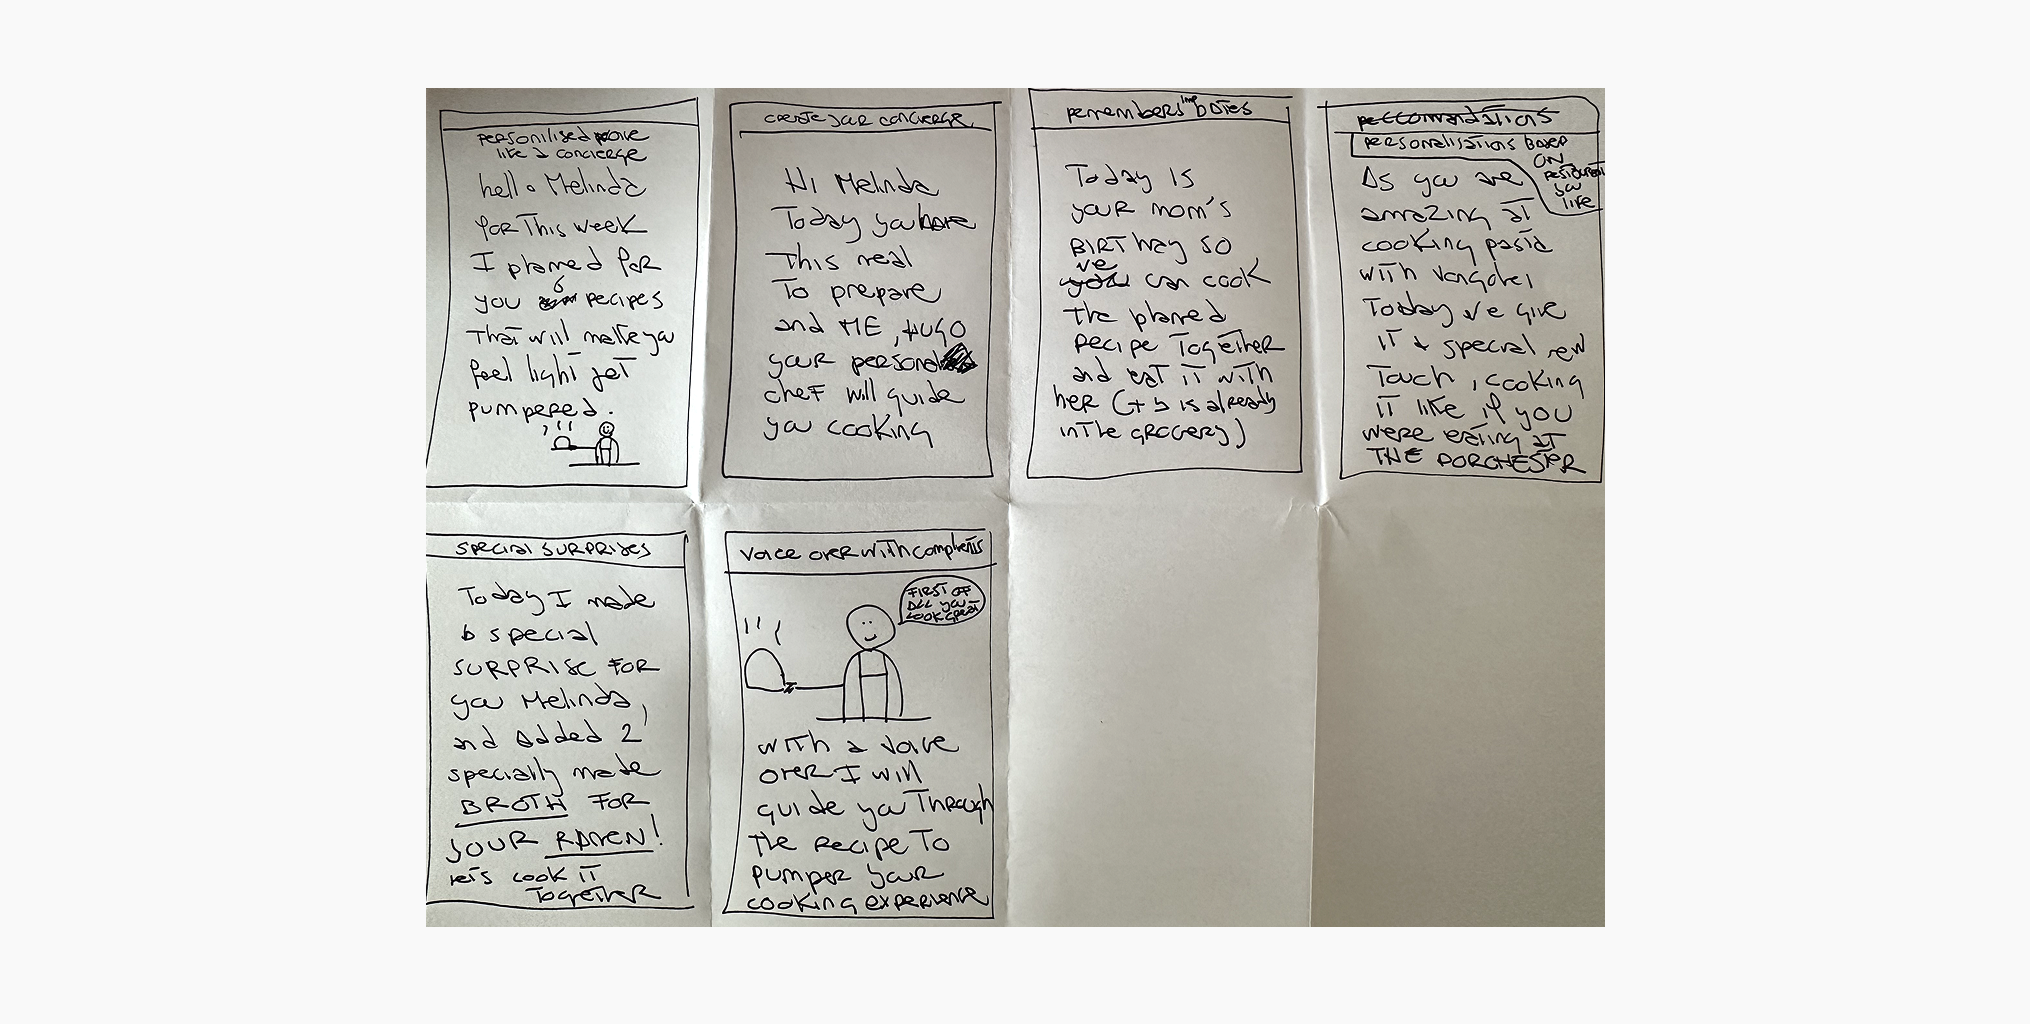 personilised
like a concierge
hello Melinda
for This week
I planned for
6
you recipes
That will make you
feel light yet
pumpered.
create your concierge
Hi Melinda
Today you have
This meal
To prepare
and ME, HUGO
your personal
chef will guide
you cooking
remembers imp DATES
Today IS
your mom's
BIRTHDAY SO
we
you can cook
The planned
RECIPE TOGETHER
and eat IT WITH
her (it is already
in The grocery)
reccomandations
PERSONALISATIONS BASED
ON
RESTAURANT
you
like
As you are
amazing at
cooking pasta
with vongole,
Today we give
IT a special new
Touch, cooking
IT like if you
were eating at
THE DORCHESTER
SPECIAL SURPRISES
Today I made
a special
SURPRISE FOR
you Melinda,
and Added 2
specially made
BROTH FOR
YOUR RAMEN!
let's cook IT
TOGETHER
voice over with compliments
FIRST OF
ALL YOU
LOOK GREAT
with a voice
over I will
guide you Through
The RECIPE TO
pumper your
cooking experience